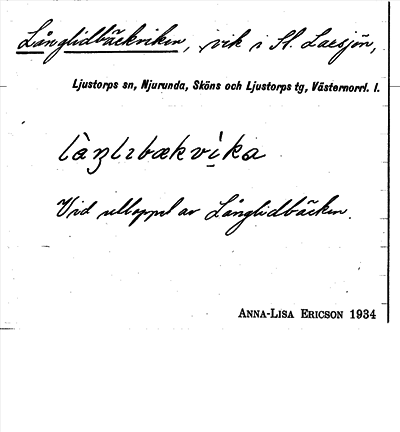 Långlidbäckviken, vik i St. Laxsjön,
Ljustorps sn, Njurunda, Sköns och Ljustorps tg, Västernorrl. l.
Vid utloppet av Långlidbäcken.
ANNA-LISA ERICSON 1934